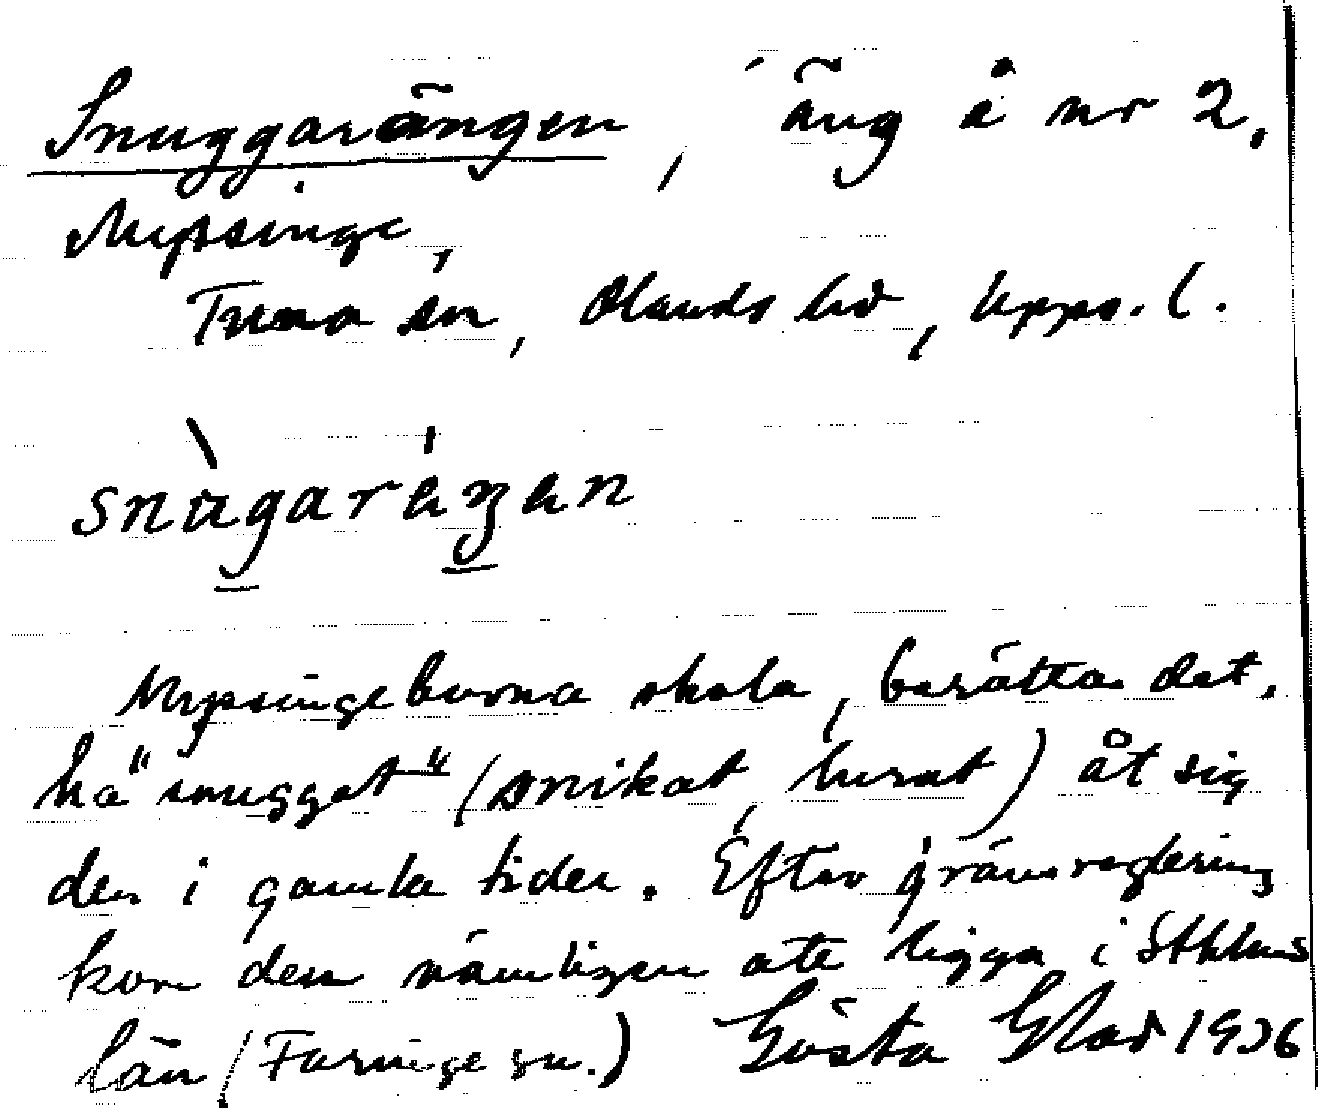 Snuggarängen, äng å nr 2,
Mysinge,
Tuna sn, Olands hd, Upps. l.
snùgaráŋen
Mysingeborna skola, berätta det,
ha "snuggat" (snikat, lurat) åt sig
den i gamla tider. Efter gränsreglering
kom den nämligen att ligga i Sthlms
län (Faringe sn.) Gösta Glad 1936